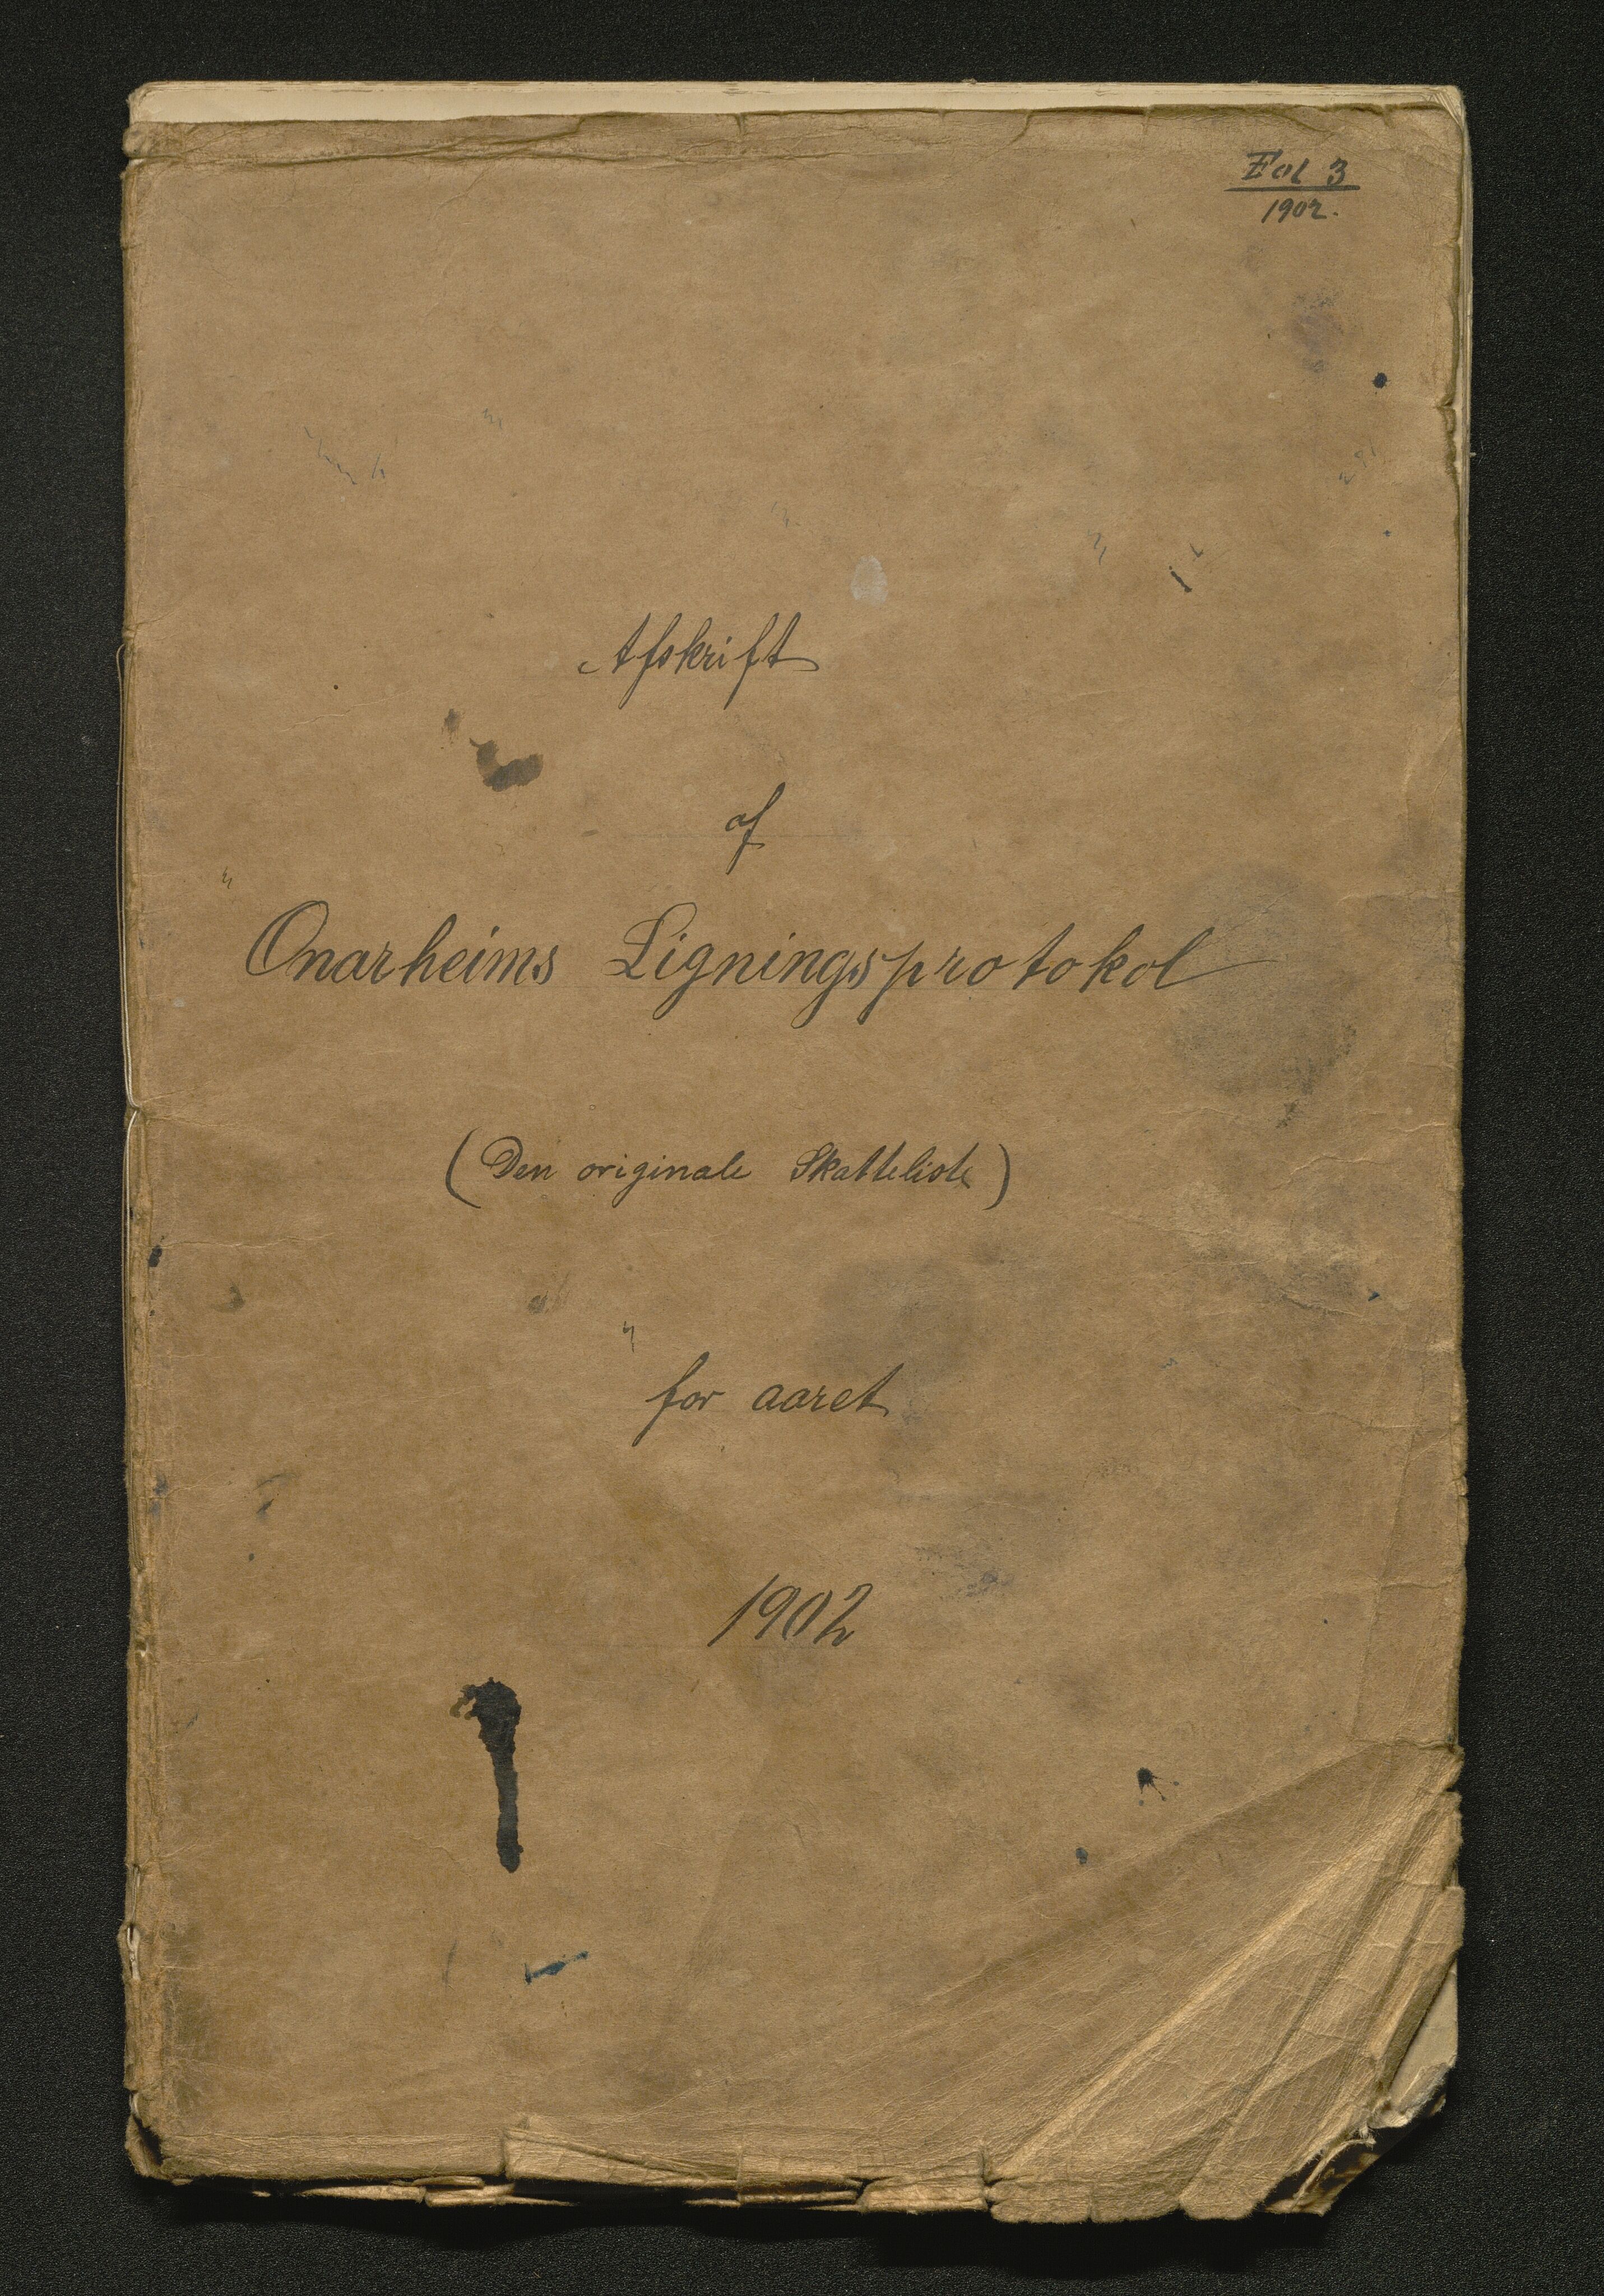 Fol 3
1902.
Afskrift
af
Onarheims Ligningsprotokol
(Den originale Skatteliste)
for aaret
1902